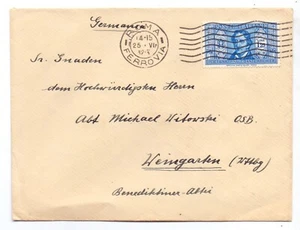 Germania
ROMA
14-15
25·VII
FERROVIA
Sr. Gnaden
dem Hochwürdigsten Herrn
Abt Michael Witowski OSB.
Weingarten (Wttbg)
Benediktiner-Abtei